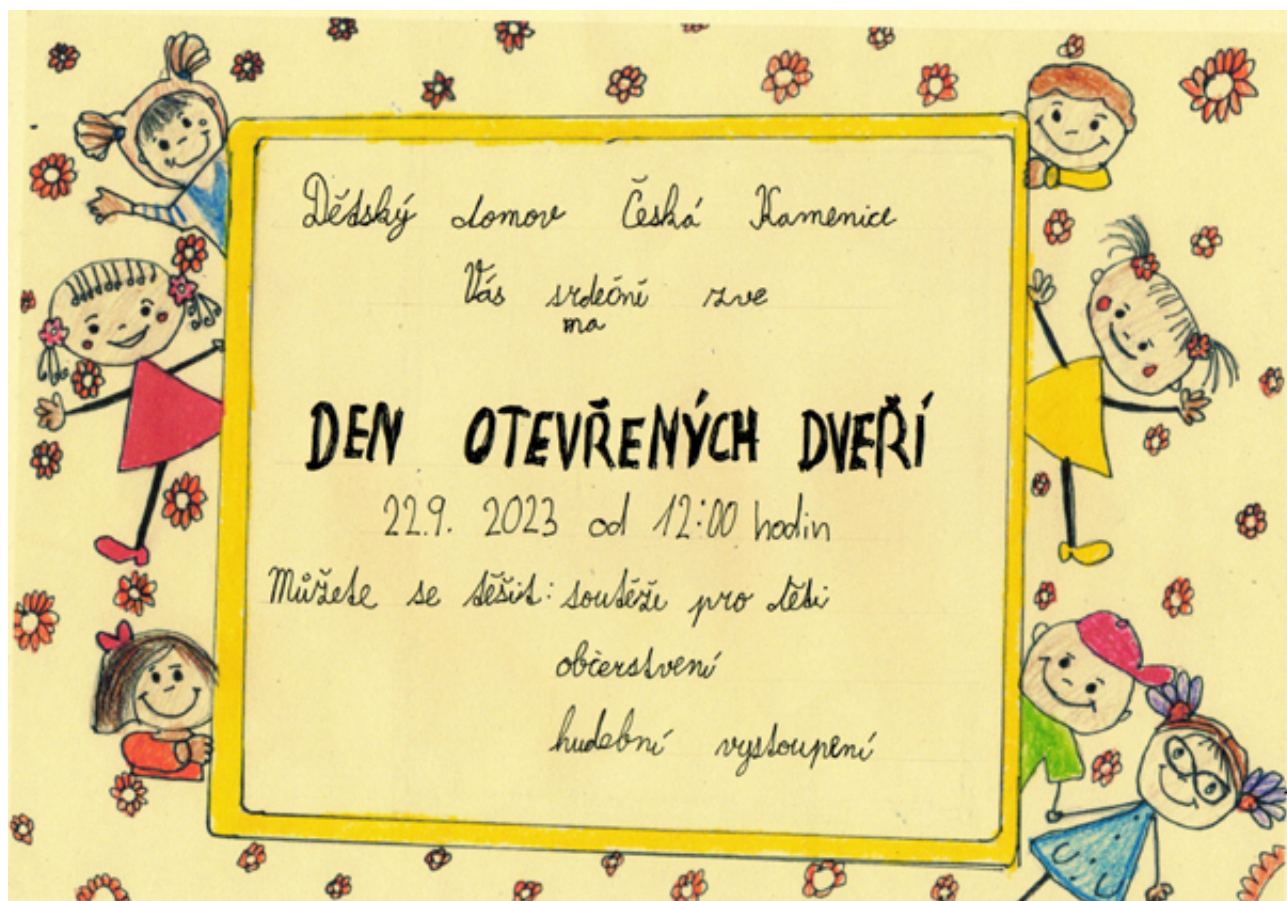 Dětský domov Česká Kamenice
Vás srdečně zve
na
DEN OTEVŘENÝCH DVEŘÍ
22.9. 2023 od 12:00 hodin
Můžete se těšit: soutěže pro děti
občerstvení
hudební vystoupení